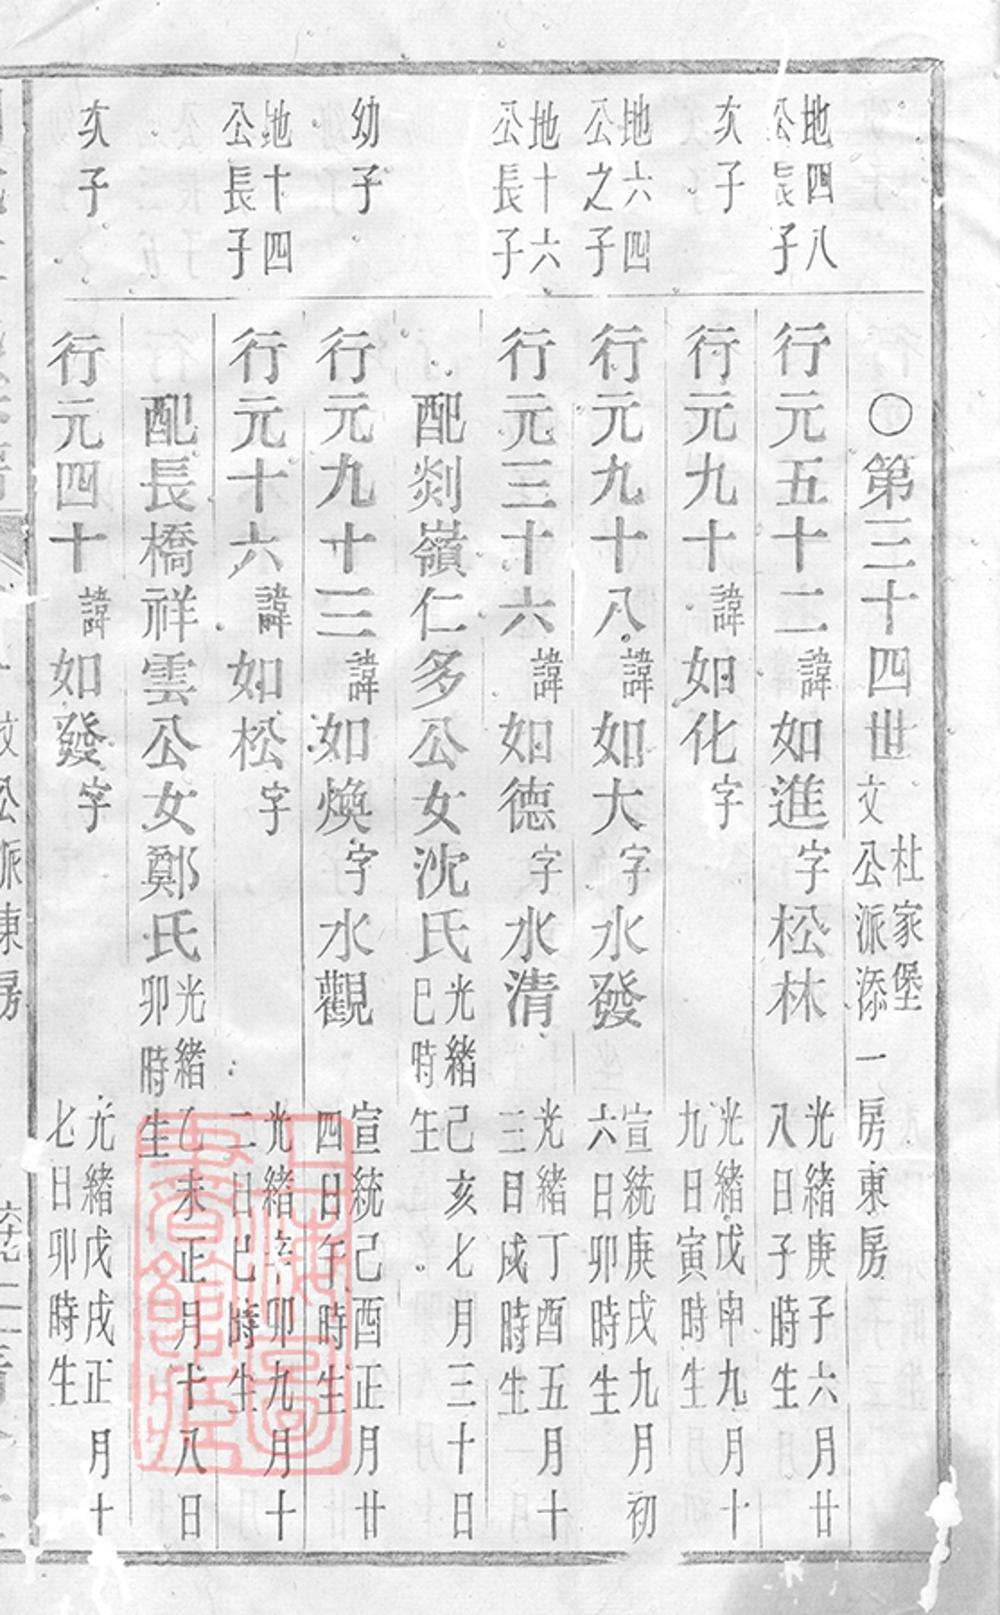 ○第三十四世 杜家堡
文公派添一房東房
地四八
公長子
行元五十二諱如進字松林
光緒庚子六月廿
八日子時生
次子
行元九十諱如化字
光緒戊申九月十
九日寅時生
地六四
公之子
行元九十八諱如大字水發
宣統庚戌九月初
六日卯時生
地十六
公長子
行元三十六諱如德字水清
光緒丁酉五月十
三日戌時生
配剡嶺仁多公女沈氏
光緒己亥七月三十日
巳時生
幼子
行元九十三諱如煥字水觀
宣統己酉正月廿
四日午時生
地十四
公長子
行元十六諱如松字
光緒辛卯九月十
二日巳時生
配長橋祥雲公女鄭氏
光緒乙未正月十八日
卯時生
次子
行元四十諱如發字
光緒戊戌正月十
七日卯時生
文公派東房